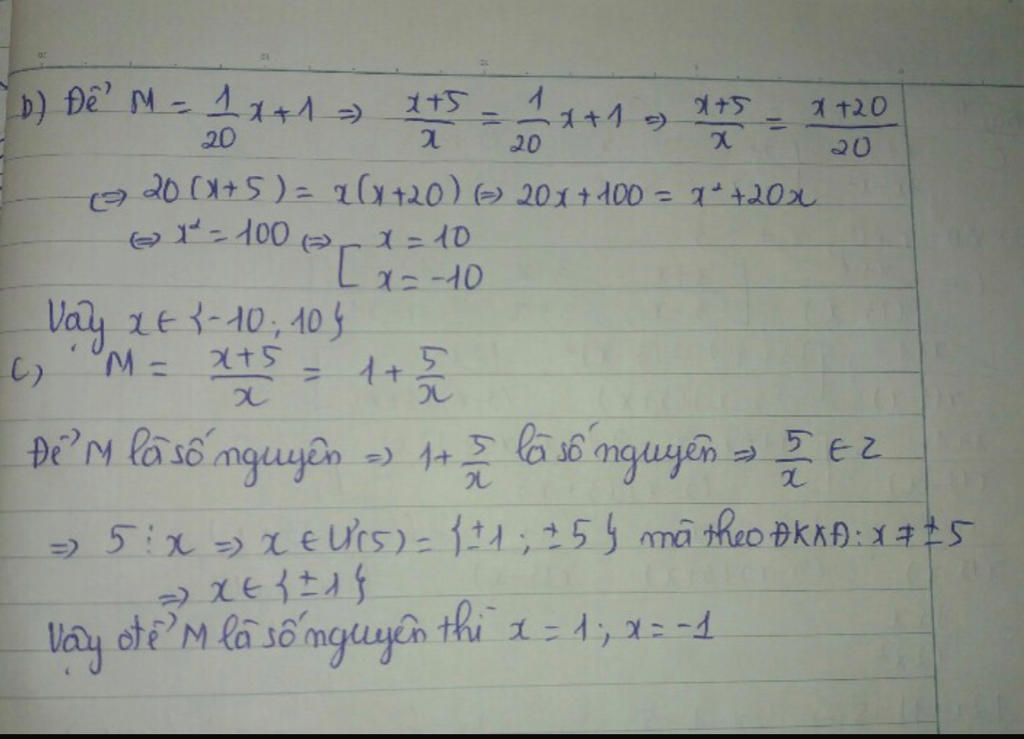 b) Để M = 1/20 x + 1 => x+5/x = 1/20 x + 1 => x+5/x = x+20/20
<=> 20(x+5) = x(x+20) <=> 20x + 100 = x² + 20x
<=> x² = 100 <=> [ x = 10
x = -10
Vậy x ∈ {-10; 10}
c) M = x+5/x = 1 + 5/x
Để M là số nguyên => 1 + 5/x là số nguyên => 5/x ∈ Z
=> 5 ⋮ x => x ∈ Ư(5) = {±1; ±5} mà theo ĐKXĐ: x ≠ ±5
=> x ∈ {±1}
Vậy để M là số nguyên thì x = 1; x = -1